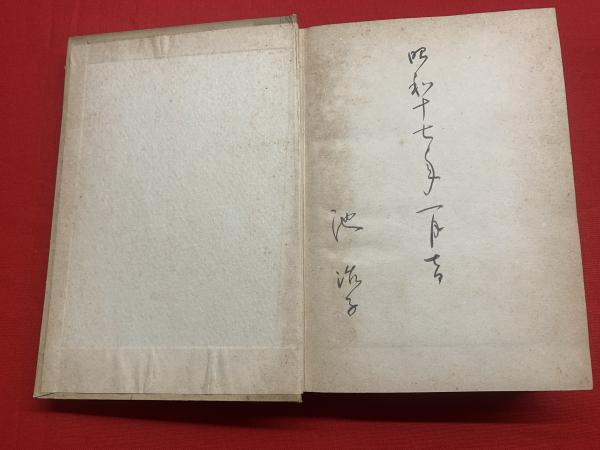 昭和十七年一月吉日
池 治子